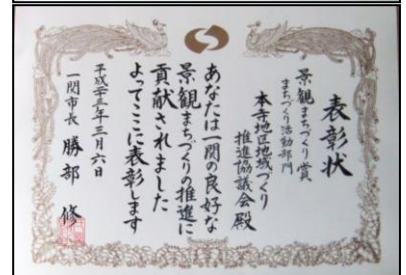 表彰状
景観まちづくり賞
まちづくり活動部門
本寺地区地域づくり
推進協議会殿
あなたは一関の良好な
景観まちづくりの推進に
貢献されました
よってここに表彰します
平成二十五年三月六日
一関市長 勝部 修